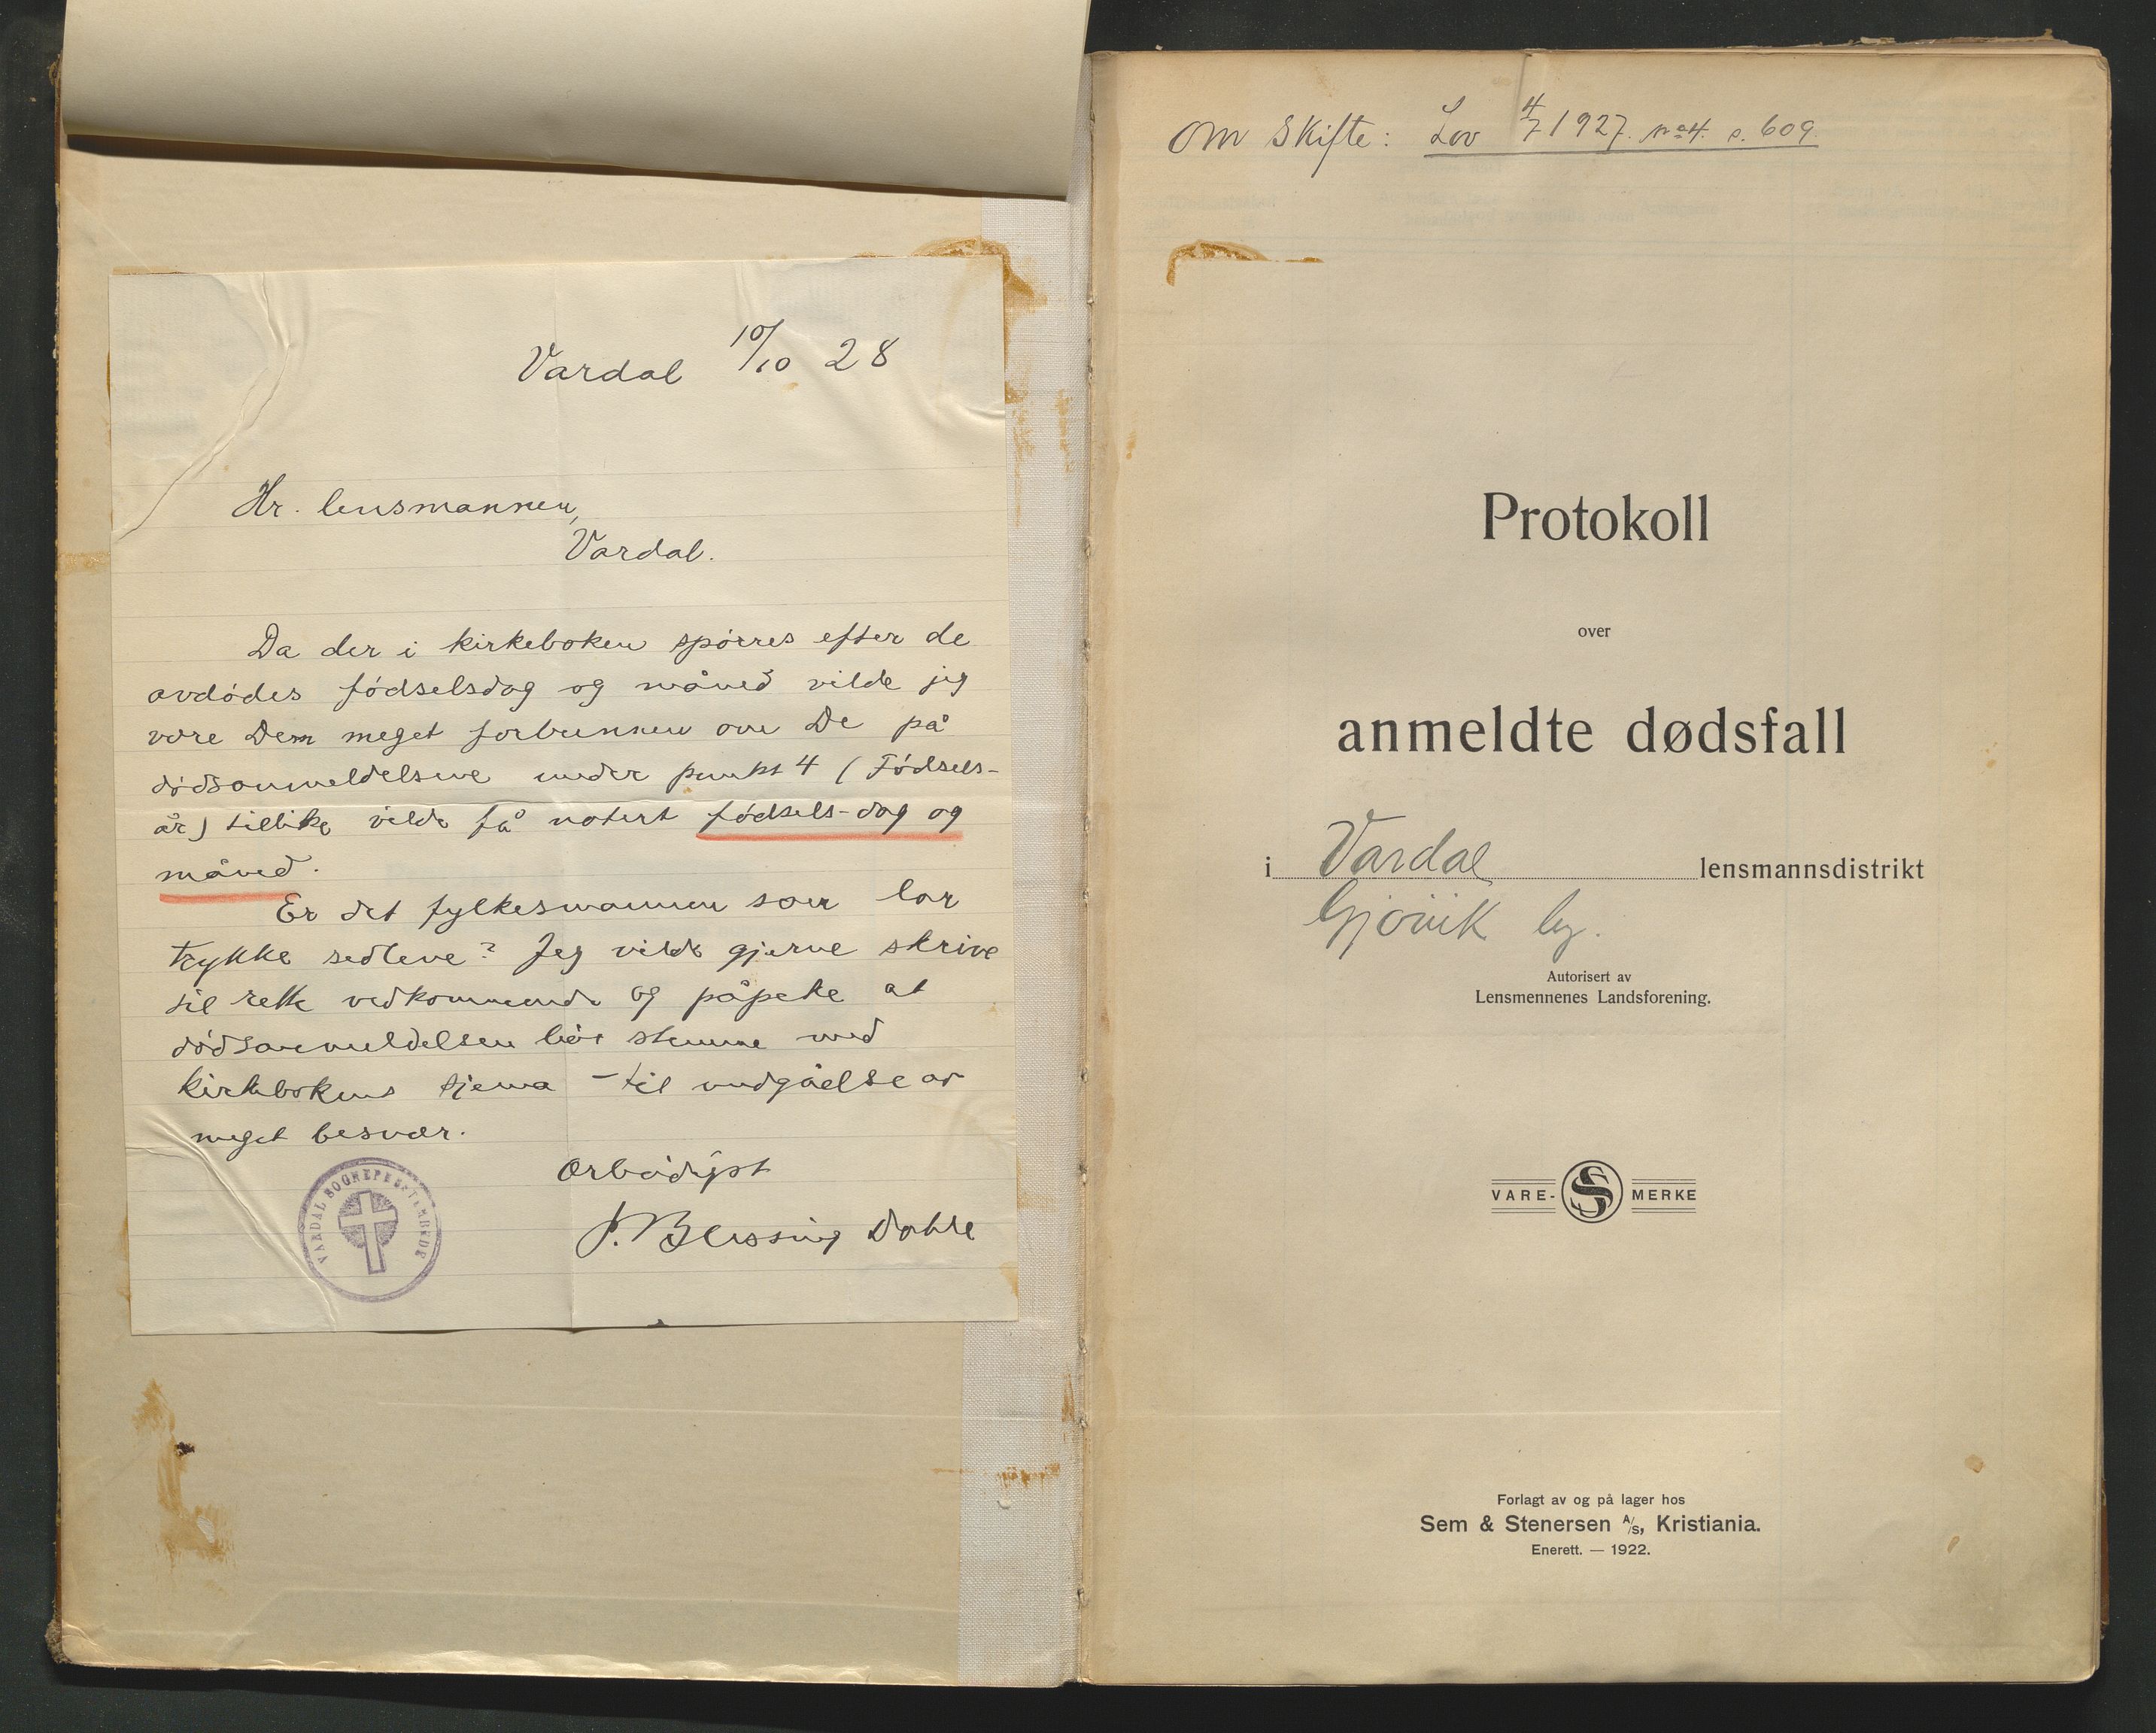 Vardal 10/10 28
Hr. lensmannen,
Vardal.
Da der i kirkeboken spörres efter de
avdödes födselsdag og måned vilde jeg
være Dem meget forbunnen om De på
dödsanmeldelsene under punkt 4 (Födsels-
år) tillike vilde få notert födsels-dag og
måned.
Er det fylkesmannen som lar
trykke sedlene? Jeg vilde gjerne skrive
til rette vedkommende og påpeke at
dödsanmeldelsen bör stemme med
kirkebokens sjema - til undgåelse av
meget besvær.
Ærbödigst
J. Blessing Dahle
VARDAL SOGNEPRESTEMBEDE
Om Skifte: Lov 4/7 1927. no 4. s. 609.
Protokoll
over
anmeldte dødsfall
i Vardal lensmannsdistrikt
Gjövik by.
Autorisert av
Lensmennenes Landsforening.
VARE- S MERKE
Forlagt av og på lager hos
Sem & Stenersen A/S, Kristiania.
Enerett. — 1922.